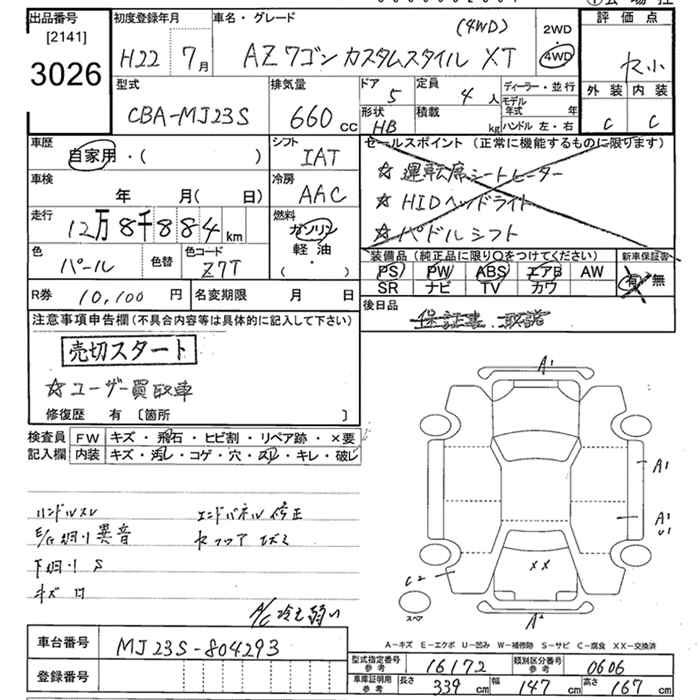 出品番号 初度登録年月 車名・グレード 評価点
[2141] (4WD) 2WD
3026 H22 7月 AZワゴン カスタムスタイル XT 4WD
型式 排気量 ドア 定員 ディーラー・並行 外装 内装
CBA-MJ23S 660cc 5 4人 モデル年式 年 C C
形状 HB 積載 kg ハンドル 左・右
車歴 シフト セールスポイント (正常に機能するものに限ります)
自家用・( ) IAT ☆運転席シートヒーター
車検 冷房 ☆HIDヘッドライト
年 月( 日) AAC ☆パドルシフト
走行 燃料
12万8千884km ガソリン
軽油
( ・ )
色 色替 色コード 装備品 (純正品に限り○をつけてください) 新車保証書
パール Z7T PS PW ABS エアB AW 有・無
SR ナビ TV カワ
R券 10,100円 名変期限 月 日 後日品
保証書・取説
注意事項申告欄(不具合内容等は具体的に記入して下さい)
売切スタート
☆ユーザー買取車
修復歴 有 〔箇所 〕
検査員 FW キズ・飛石・ヒビ割・リペア跡・×要
記入欄 内装 キズ・汚レ・コゲ・穴・スリ・キレ・破レ
ハンドルスレ エンドパネル修正
E/G廻り異音
下廻りS
キズ凹
A/C冷え弱い
A1
A1
A1
U1
XX
C2
スペア
A2
A-キズ E-エクボ U-凹み W-補修跡 S-サビ C-腐食 XX-交換済
車台番号 MJ23S-804293
型式指定番号 参考 16172 類別区分番号 参考 0606
登録番号 車庫証明用 参考 長さ 339cm 幅 147cm 高さ 167cm